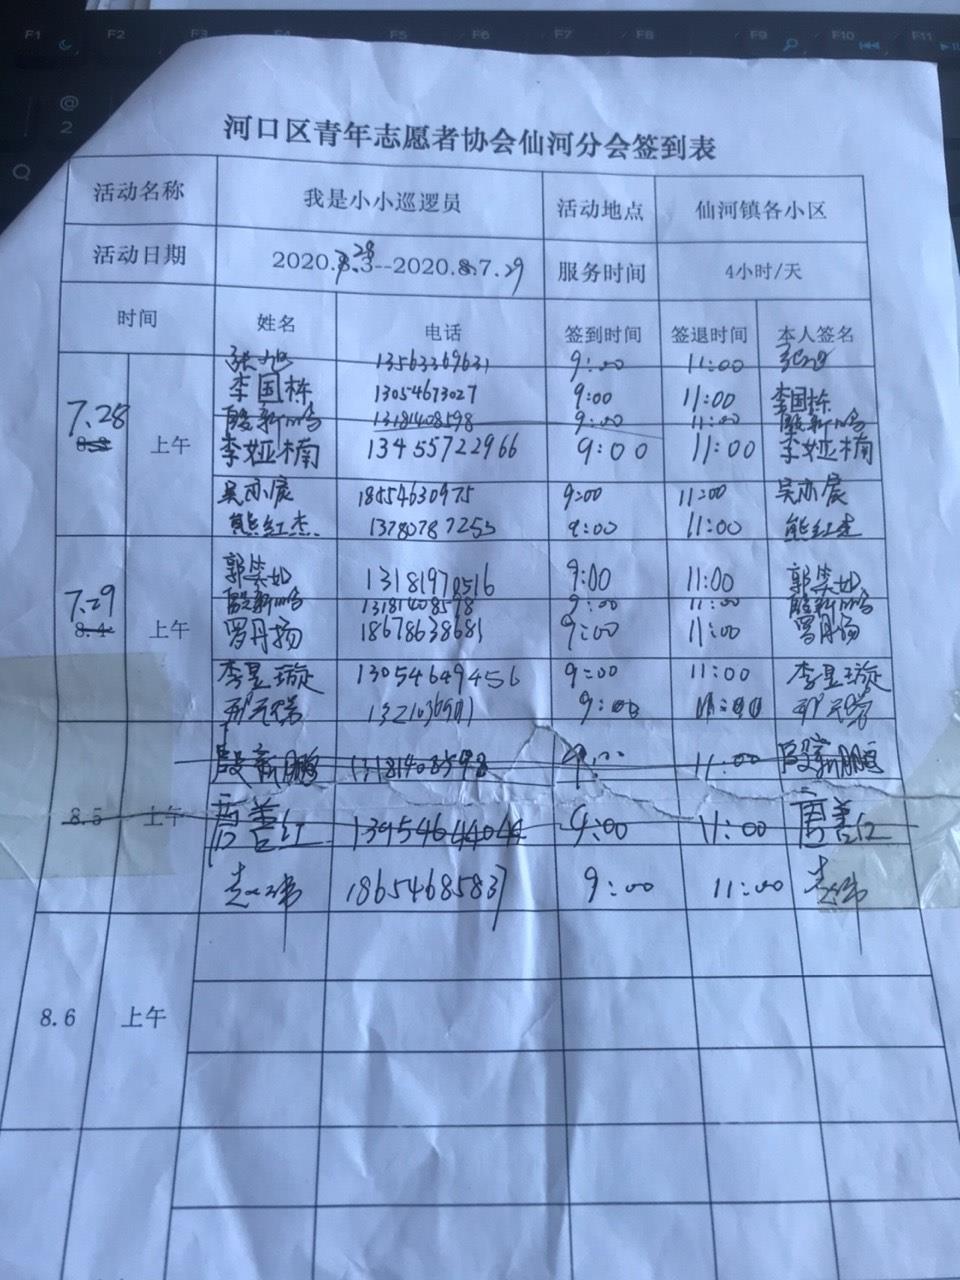 F1 F2 F3 F4 F5 F6 F7 F8 F9 F10 F11
@
2
Q
河口区青年志愿者协会仙河分会签到表
活动名称 我是小小巡逻员 活动地点 仙河镇各小区
活动日期 2020.8.3--2020.8.7.29 服务时间 4小时/天
28
时间 姓名 电话 签到时间 签退时间 本人签名
张旭 13563369631 9:00 11:00 张旭
李国栋 13054673027 9:00 11:00 李国栋
7.28 殷新鹏 13181408598 9:00 11:00 殷新鹏
8.3 上午 李娅楠 13455722966 9:00 11:00 李娅楠
吴亦宸 18554630975 9:00 11:00 吴亦宸
熊红杰 13780787253 9:00 11:00 熊红杰
郭芙如 13181970516 9:00 11:00 郭芙如
7.29 殷新鹏 13181408598 9:00 11:00 殷新鹏
8.4 上午 罗丹扬 18678638681 9:00 11:00 罗丹扬
李昱璇 13054649456 9:00 11:00 李昱璇
9:00 11:00
殷新鹏 13181408598 9:00 11:00 殷新鹏
8.5 上午 唐善红 13954644044 9:00 11:00 唐善红
18654685837 9:00 11:00
8.6 上午